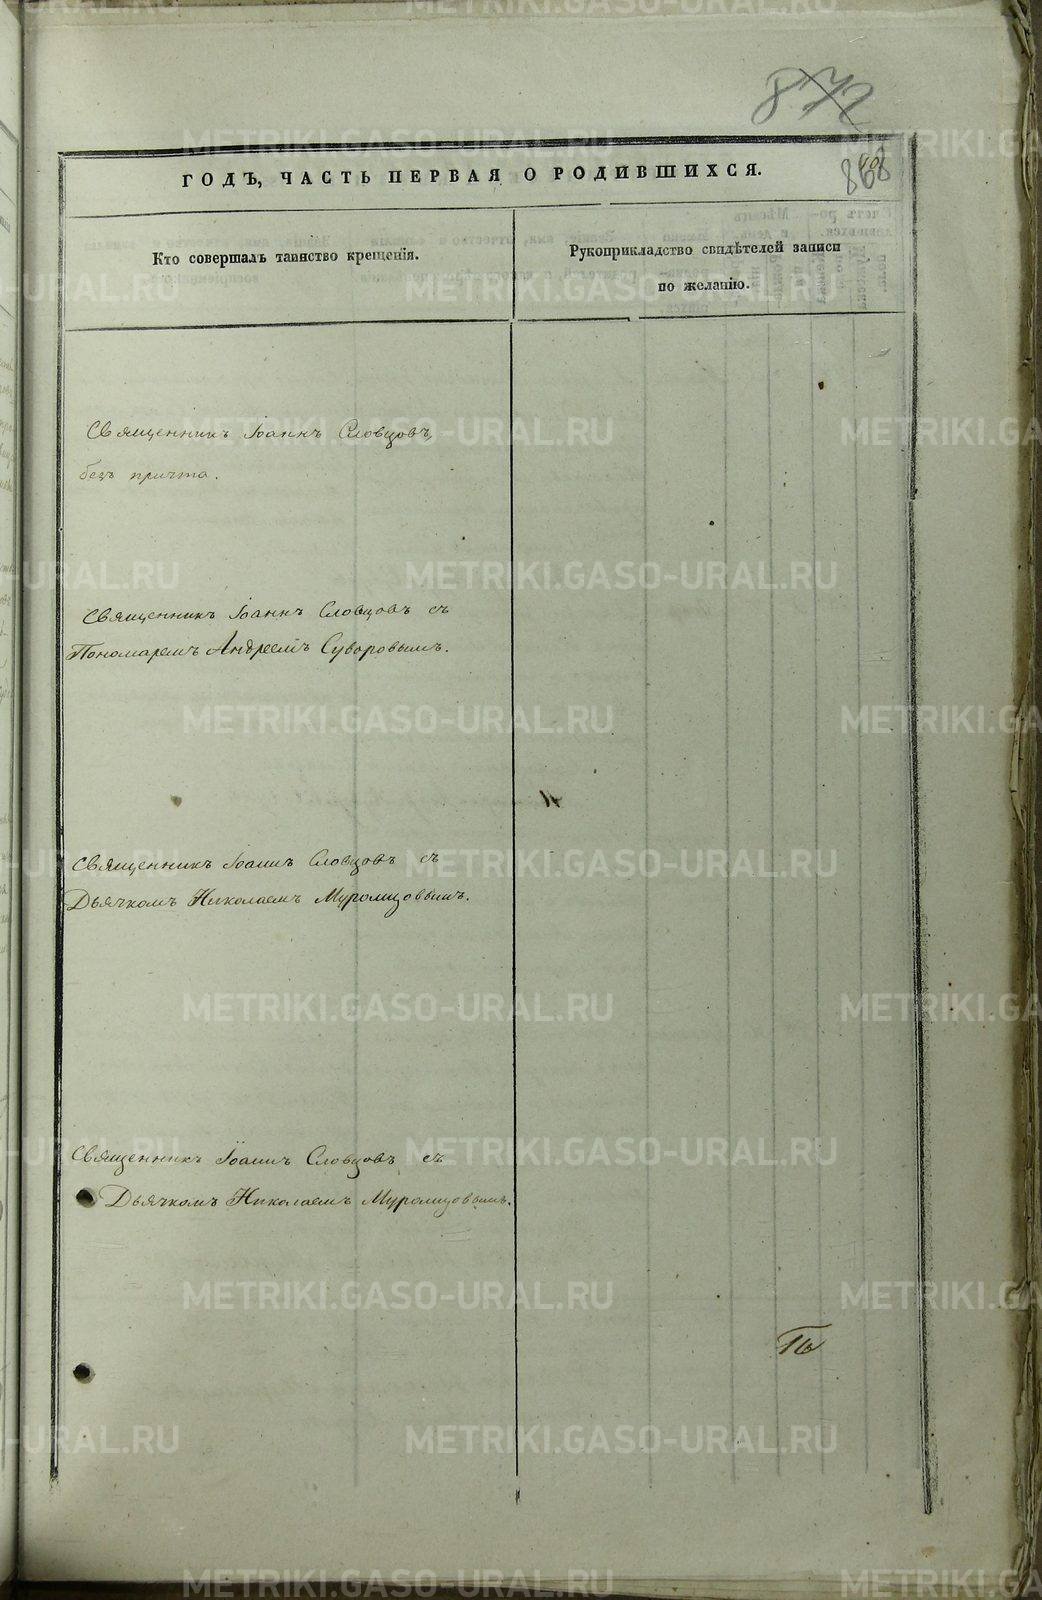 872
868
ГОДЪ, ЧАСТЬ ПЕРВАЯ О РОДИВШИХСЯ.
Кто совершалъ таинство крещенія.
Рукоприкладство свидѣтелей записи
по желанію.
Священникъ Іоаннъ Словцовъ,
безъ причта.
Священникъ Іоаннъ Словцовъ съ
Пономаремъ Андреемъ Суворовымъ.
Священникъ Іоаннъ Словцовъ съ
Дьячкомъ Николаемъ Муромцовымъ.
Священникъ Іоаннъ Словцовъ съ
Дьячкомъ Николаемъ Муромцовымъ.
METRIKI.GASO-URAL.RU